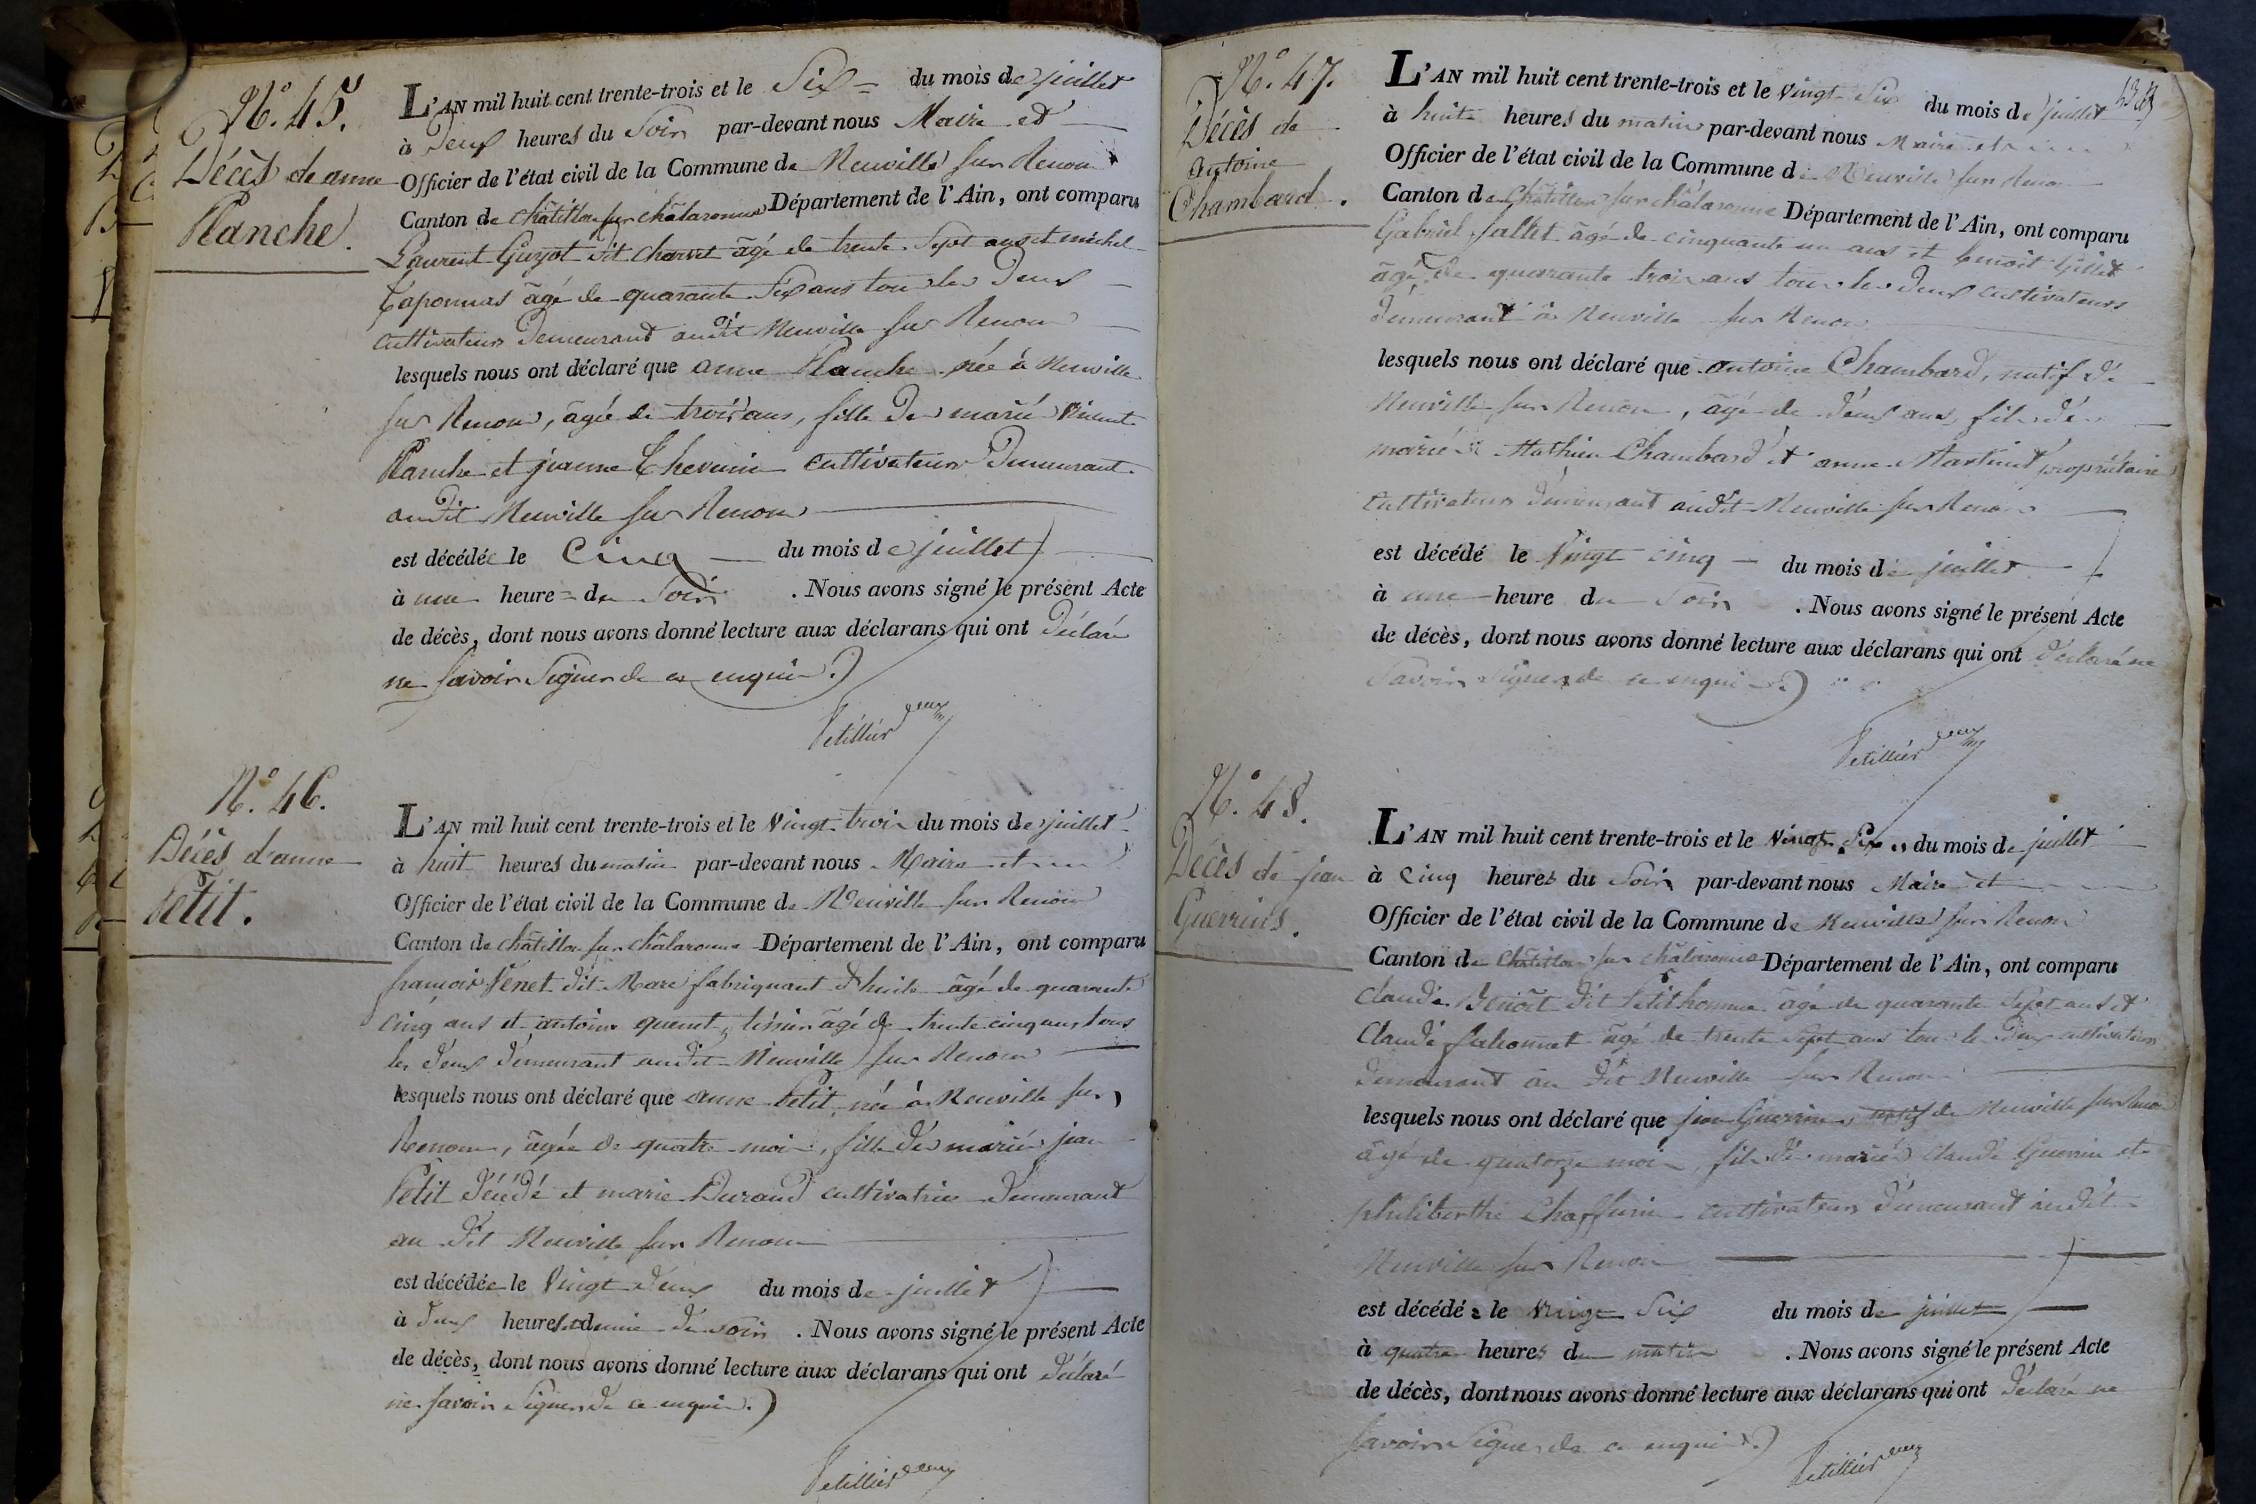 N.° 45.
Décès de anne
Planche.
L'AN mil huit cent trente-trois et le Six = du mois de juillet
à Deux heures du Soir par-devant nous Maire et
Officier de l'état civil de la Commune de Neuville sur Renom
Canton de châtillon sur châlaronne Département de l'Ain, ont comparu
Laurent Guyot dit Charvet âgé de trente Sept ans et michel
Taponnas âgé de quarante Six ans tou les Deux
cultivateurs Demeurant audit Neuville sur Renom
lesquels nous ont déclaré que anne Planche née à Neuville
sur Renom, âgée de trois ans, fille De marié Vincent
Planche et jeanne Thevenin cultivateurs Demeurant
audit Neuville sur Renom
est décédée le Cinq du mois de juillet
à une heure = du Soir . Nous avons signé le présent Acte
de décès, dont nous avons donné lecture aux déclarans qui ont Déclaré
ne Savoir Signer de ce enquis.
Petillier
N.° 46.
Décès d'anne
Petit.
L'AN mil huit cent trente-trois et le Vingt trois du mois de juillet
à huit heures du matin par-devant nous Maire et
Officier de l'état civil de la Commune de Neuville sur Renom
Canton de châtillon sur châlaronne Département de l'Ain, ont comparu
françois Venet dit More fabriquant d'huile âgé de quarante
cinq ans et antoine quenet, tissier âgé de trente cinq ans, tous
les deux demeurant audit Neuville sur Renom
lesquels nous ont déclaré que anne Petit née à Neuville sur
Renom, âgée de quatre mois, fille de marié jean
Petit décédé et marie Durand cultivatrice demeurant
au dit Neuville sur Renom
est décédée le Vingt deux du mois de juillet
à deux heures et demie du soir . Nous avons signé le présent Acte
de décès, dont nous avons donné lecture aux déclarans qui ont déclaré
ne Savoir Signer de ce enquis.
Petillier
N.° 47.
Décès de
antoine
Chambard.
L'AN mil huit cent trente-trois et le Vingt Six du mois de juillet
à huit heures du matin par-devant nous Maire et
Officier de l'état civil de la Commune de Neuville sur Renom
Canton de Châtillon sur châlaronne Département de l'Ain, ont comparu
Gabriel fallet âgé de cinquante un ans et benoit Gillet
âgé de quarante trois ans tous les deux cultivateurs
demeurant à Neuville sur Renom
lesquels nous ont déclaré que antoine Chambard, natif de
Neuville sur Renom, âgé de deux ans, fils de
marié Mathieu Chambard et anne Martinet propriétaire
cultivateurs demeurant audit Neuville sur Renom
est décédé le Vingt cinq du mois de juillet
à une heure du Soir . Nous avons signé le présent Acte
de décès, dont nous avons donné lecture aux déclarans qui ont déclaré ne
Savoir Signer de ce enquis.
Petillier
N.° 48.
Décès de jean
L'AN mil huit cent trente-trois et le Vingt Six du mois de juillet
à Cinq heures du Soir par-devant nous Maire et
Officier de l'état civil de la Commune de Neuville sur Renom
Canton de Châtillon sur châlaronne Département de l'Ain, ont comparu
Claude Benoît dit Petit homme âgé de quarante Sept ans et
Claude âgé de trente Sept ans tou les deux cultivateurs
demeurant au dit Neuville sur Renom
lesquels nous ont déclaré que jean Guerrin natif de Neuville sur Renom
âgé de quatorze mois, fils de marié Claude Guerrin et
philiberthe Chaffurin cultivateurs demeurant audit
Neuville sur Renom
est décédé le Vingt Six du mois de juillet
à quatre heures du matin . Nous avons signé le présent Acte
de décès, dont nous avons donné lecture aux déclarans qui ont déclaré ne
Savoir Signer de ce enquis.
Petillier